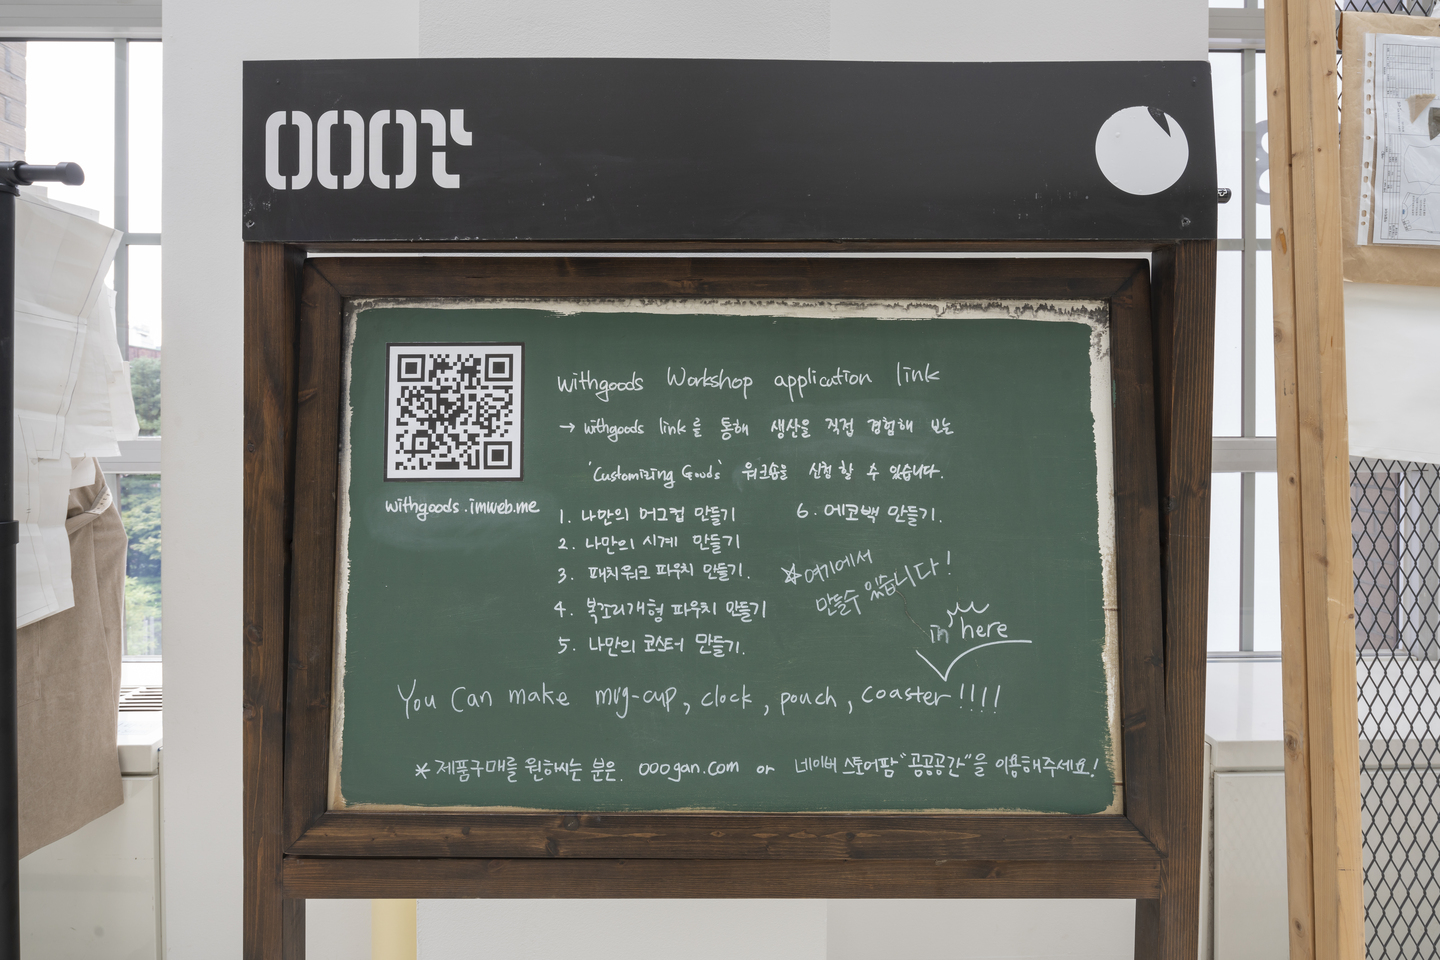 000간
withgoods Workshop application link
→ withgoods link를 통해 생산을 직접 경험해 보는
'Customizing Goods' 워크숍을 신청 할 수 있습니다.
withgoods.imweb.me
1. 나만의 머그컵 만들기
2. 나만의 시계 만들기
3. 패치워크 파우치 만들기.
4. 복조리개형 파우치 만들기
5. 나만의 코스터 만들기.
6. 에코백 만들기.
☆여기에서
만들수 있습니다!
in here
You Can make mug-cup, clock, pouch, coaster!!!!
*제품구매를 원하시는 분은. 000gan.com or 네이버 스토어팜 "공공공간"을 이용해주세요!